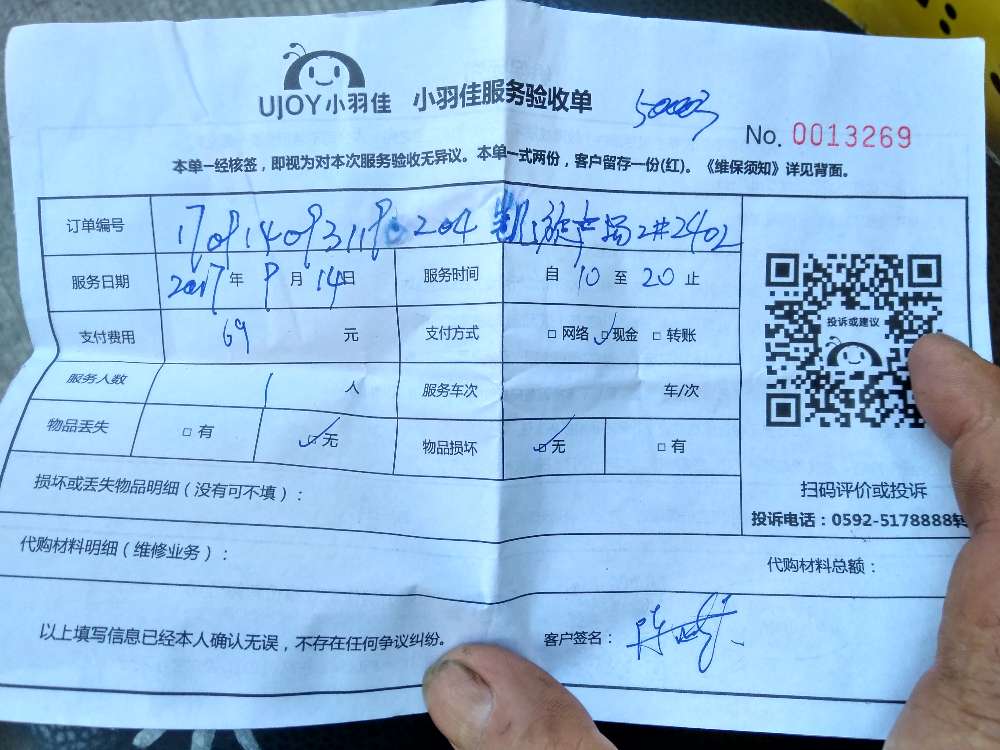 UJOY小羽佳 小羽佳服务验收单
50003
No. 0013269
本单一经核签，即视为对本次服务验收无异议。本单一式两份，客户留存一份(红)。《维保须知》详见背面。
订单编号 204 凯旋广场2#2402
服务日期 2017年 9月 14日 服务时间 自 10 至 20 止
支付费用 69 元 支付方式 □ 网络 ☑现金 □ 转账
投诉或建议
服务人数 1 人 服务车次 车/次
物品丢失 □ 有 ☑无 物品损坏 ☑无 □ 有
损坏或丢失物品明细（没有可不填）：
扫码评价或投诉
投诉电话：0592-5178888转
代购材料明细（维修业务）：
代购材料总额：
以上填写信息已经本人确认无误，不存在任何争议纠纷。 客户签名：